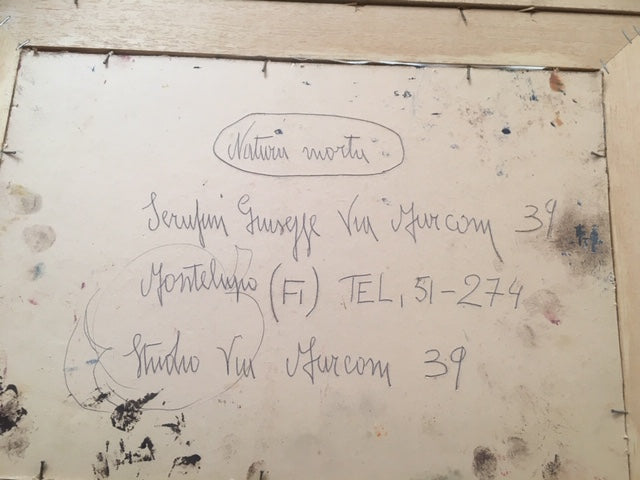 Natura morta
Serafini Giuseppe Via Marconi 39
Montelupo (FI) TEL. 51-274
Studio Via Marconi 39